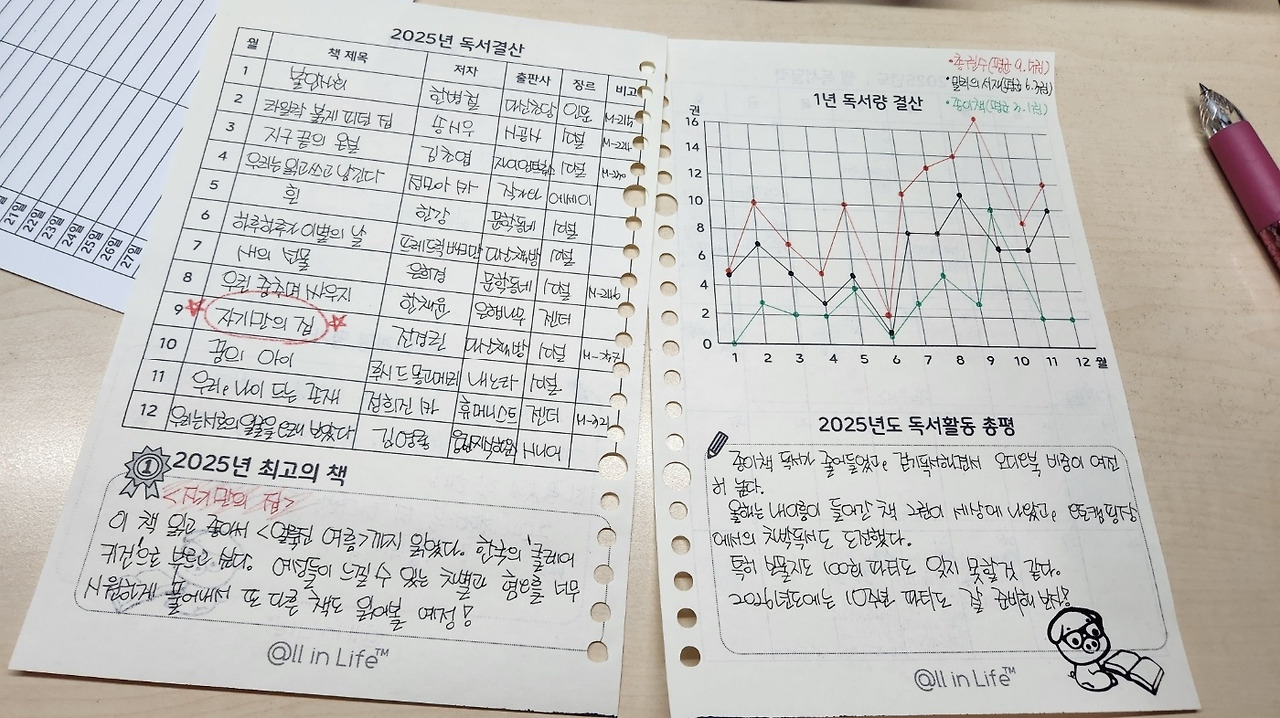 21일
22일
23일
24일
25일
26일
27일
2025년 독서결산
월 책 제목 저자 출판사 장르 비고
1 불안사회 한병철 다산초당 인문
2 파란 피면 집
3 지구 끝의 온실 김초엽 자이언트북스 소설
4 우리는 읽고 쓰고 남긴다 에세이
5 흰 한강 문학동네 소설
6 하루하루가 이별의 날 프레드릭 배크만 다산책방 소설
7 새의 선물 은희경 문학동네 소설
8 우린 춤추며 싸우지 한채윤 은행나무 젠더
9 자기만의 집 전경린 다산책방 소설
10 꿈의 아이 루시 드 몽고메리 내로라 소설
11 우리, 나이 드는 존재 정희진 外 휴머니스트 젠더
12 우리는 서로의 얼굴을 오래 보았다
2025년 최고의 책
1
<자기만의 집>
이 책 읽고 좋아서 <얼룩진 여름>까지 읽었다. 한국의 '클레어
키건'으로 부르고 싶다. 여성들이 느낄 수 있는 차별과 혐오를 너무
시원하게 풀어내서 또 다른 책도 읽어볼 예정!
@ll in Life™
•총권수(평균 9.4권)
•밀리의 서재(평균 6.3권)
•종이책(평균 3.1권)
1년 독서량 결산
권
16
14
12
10
8
6
4
2
0
1 2 3 4 5 6 7 8 9 10 11 12 월
2025년도 독서활동 총평
종이책 독서가 줄어들었고, 걷기독서하면서 오디오북 비중이 여전
히 높다.
올해는 내 이름이 들어간 책 2권이 세상에 나왔고, 캠핑장
에서의 첫박독서도 도전했다.
특히 보물지도 100회 파티도 잊지 못할 것 같다.
2026년도에는 10주년 파티도 잘 준비해 보자!
@ll in Life™